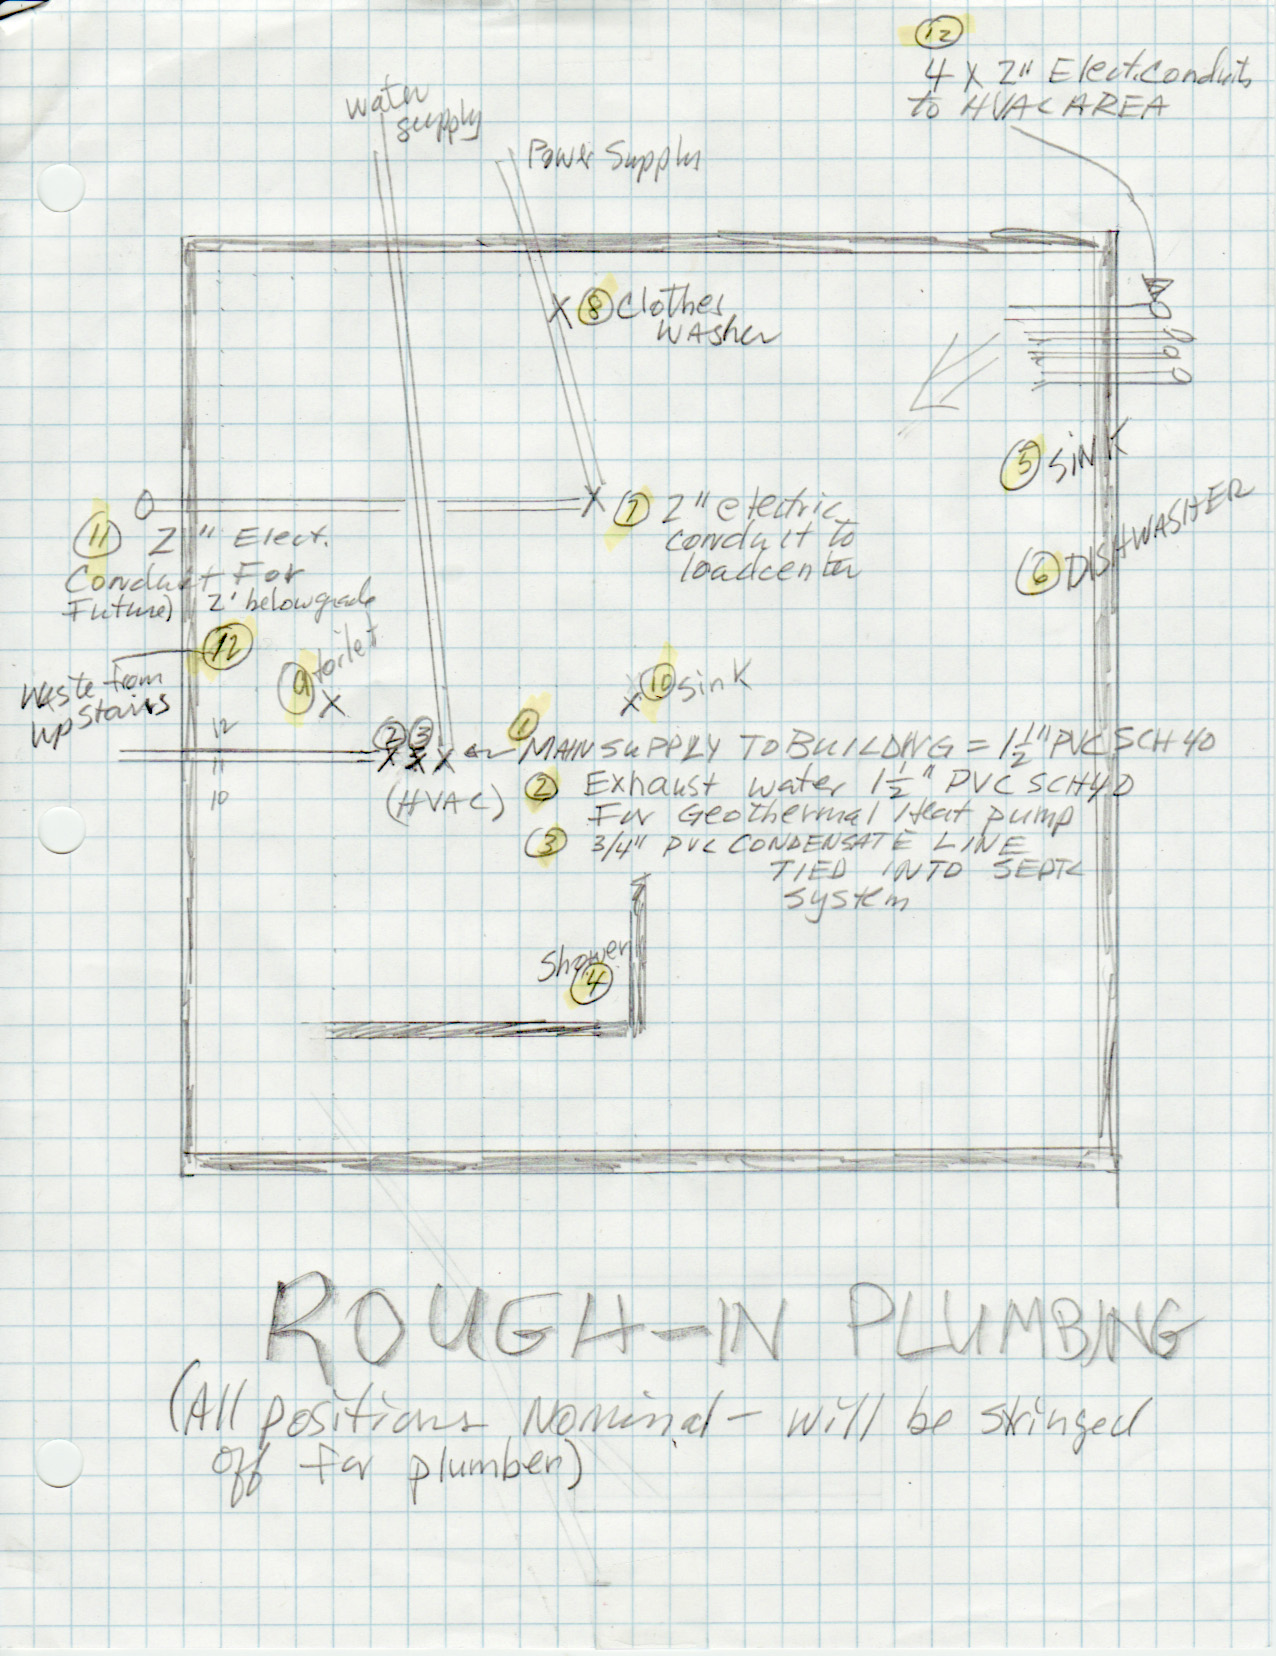 12
4 X 2" Elect. Conduits
to HVAC AREA
Water
supply
Power Supply
X 8 Clothes
Washer
5 SINK
X 7 2" electric
conduit to
loadcenter
11 2" Elect.
Conduit For
Future) 2' below grade
6 DISHWASHER
12
Waste from
upstairs
9 toilet
X
X 10 sink
12
11
10
2 3
X X X
(HVAC)
1 MAIN SUPPLY TO BUILDING = 1 1/2" PVC SCH 40
2 Exhaust water 1 1/2" PVC SCH 40
For Geothermal Heat pump
3 3/4" PVC CONDENSATE LINE
TIED INTO SEPTC
System
Shower
4
ROUGH-IN PLUMBING
(All positions Nominal - will be stringed
off for plumber)